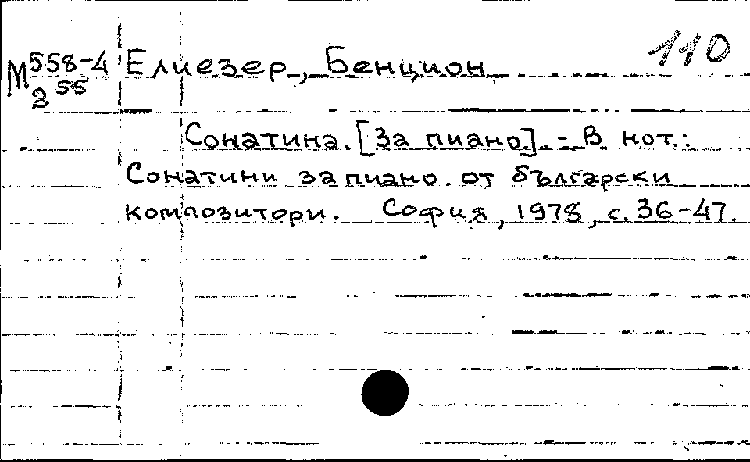 110
М 558-4 Елиезер, Бенцион
2 55
Сонатина. [За пиано]. - В нот.:
Сонатини за пиано от български
композитори. София, 1978, с. 36-47.